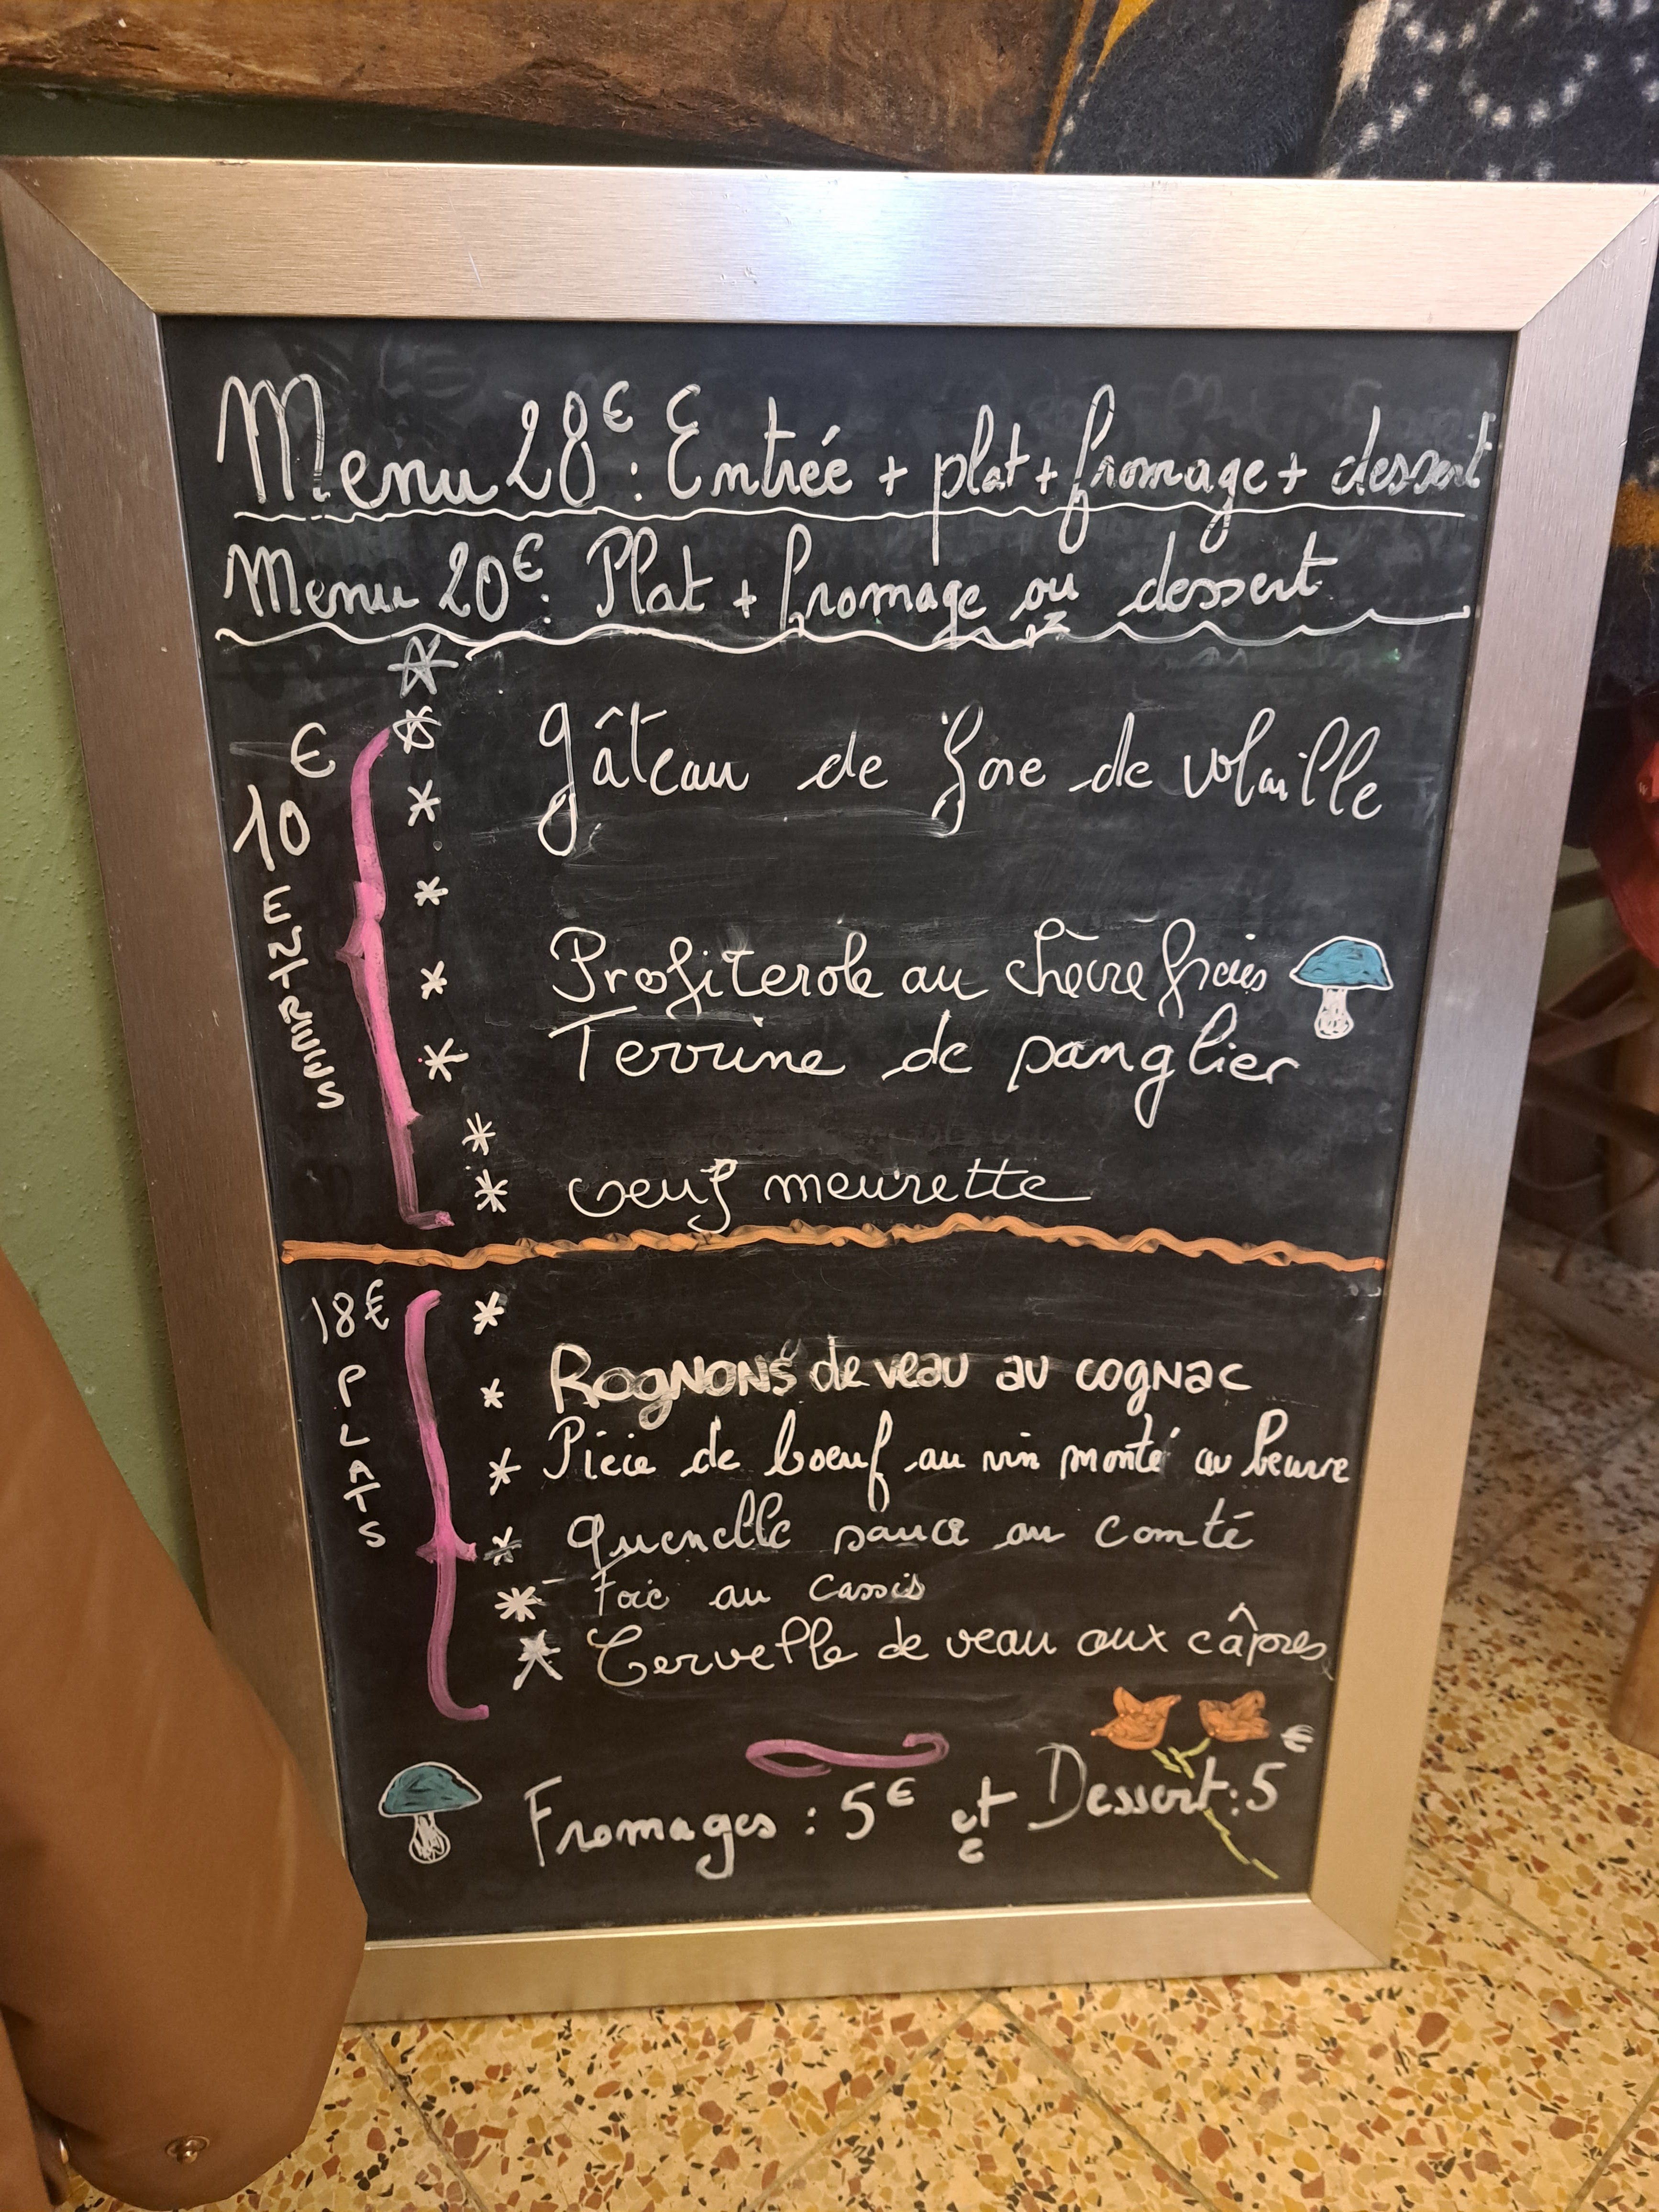 Menu 28€ : Entrée + plat + fromage + dessert
Menu 20€ : Plat + fromage ou dessert
€
10
ENTREES
gâteau de foie de volaille
Profiterole au chèvre frais
Terrine de sanglier
oeuf meurette
18€
PLATS
ROGNONS de veau au cognac
Pièce de boeuf au vin monté au beurre
Quenelle sauce au comté
Foie au cassis
Cervelle de veau aux câpres
Fromages : 5€ et Dessert : 5€